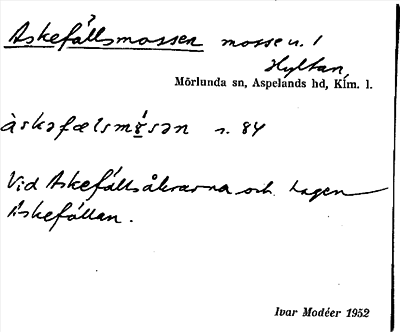 Askefällsmossen mosse u. 1
Hyltan,
Mörlunda sn, Aspelands hd, Klm. l.
àskəfælsmósən s. 84
Vid Askefällsåkrarna och hagen
Askefällan.
Ivar Modéer 1952